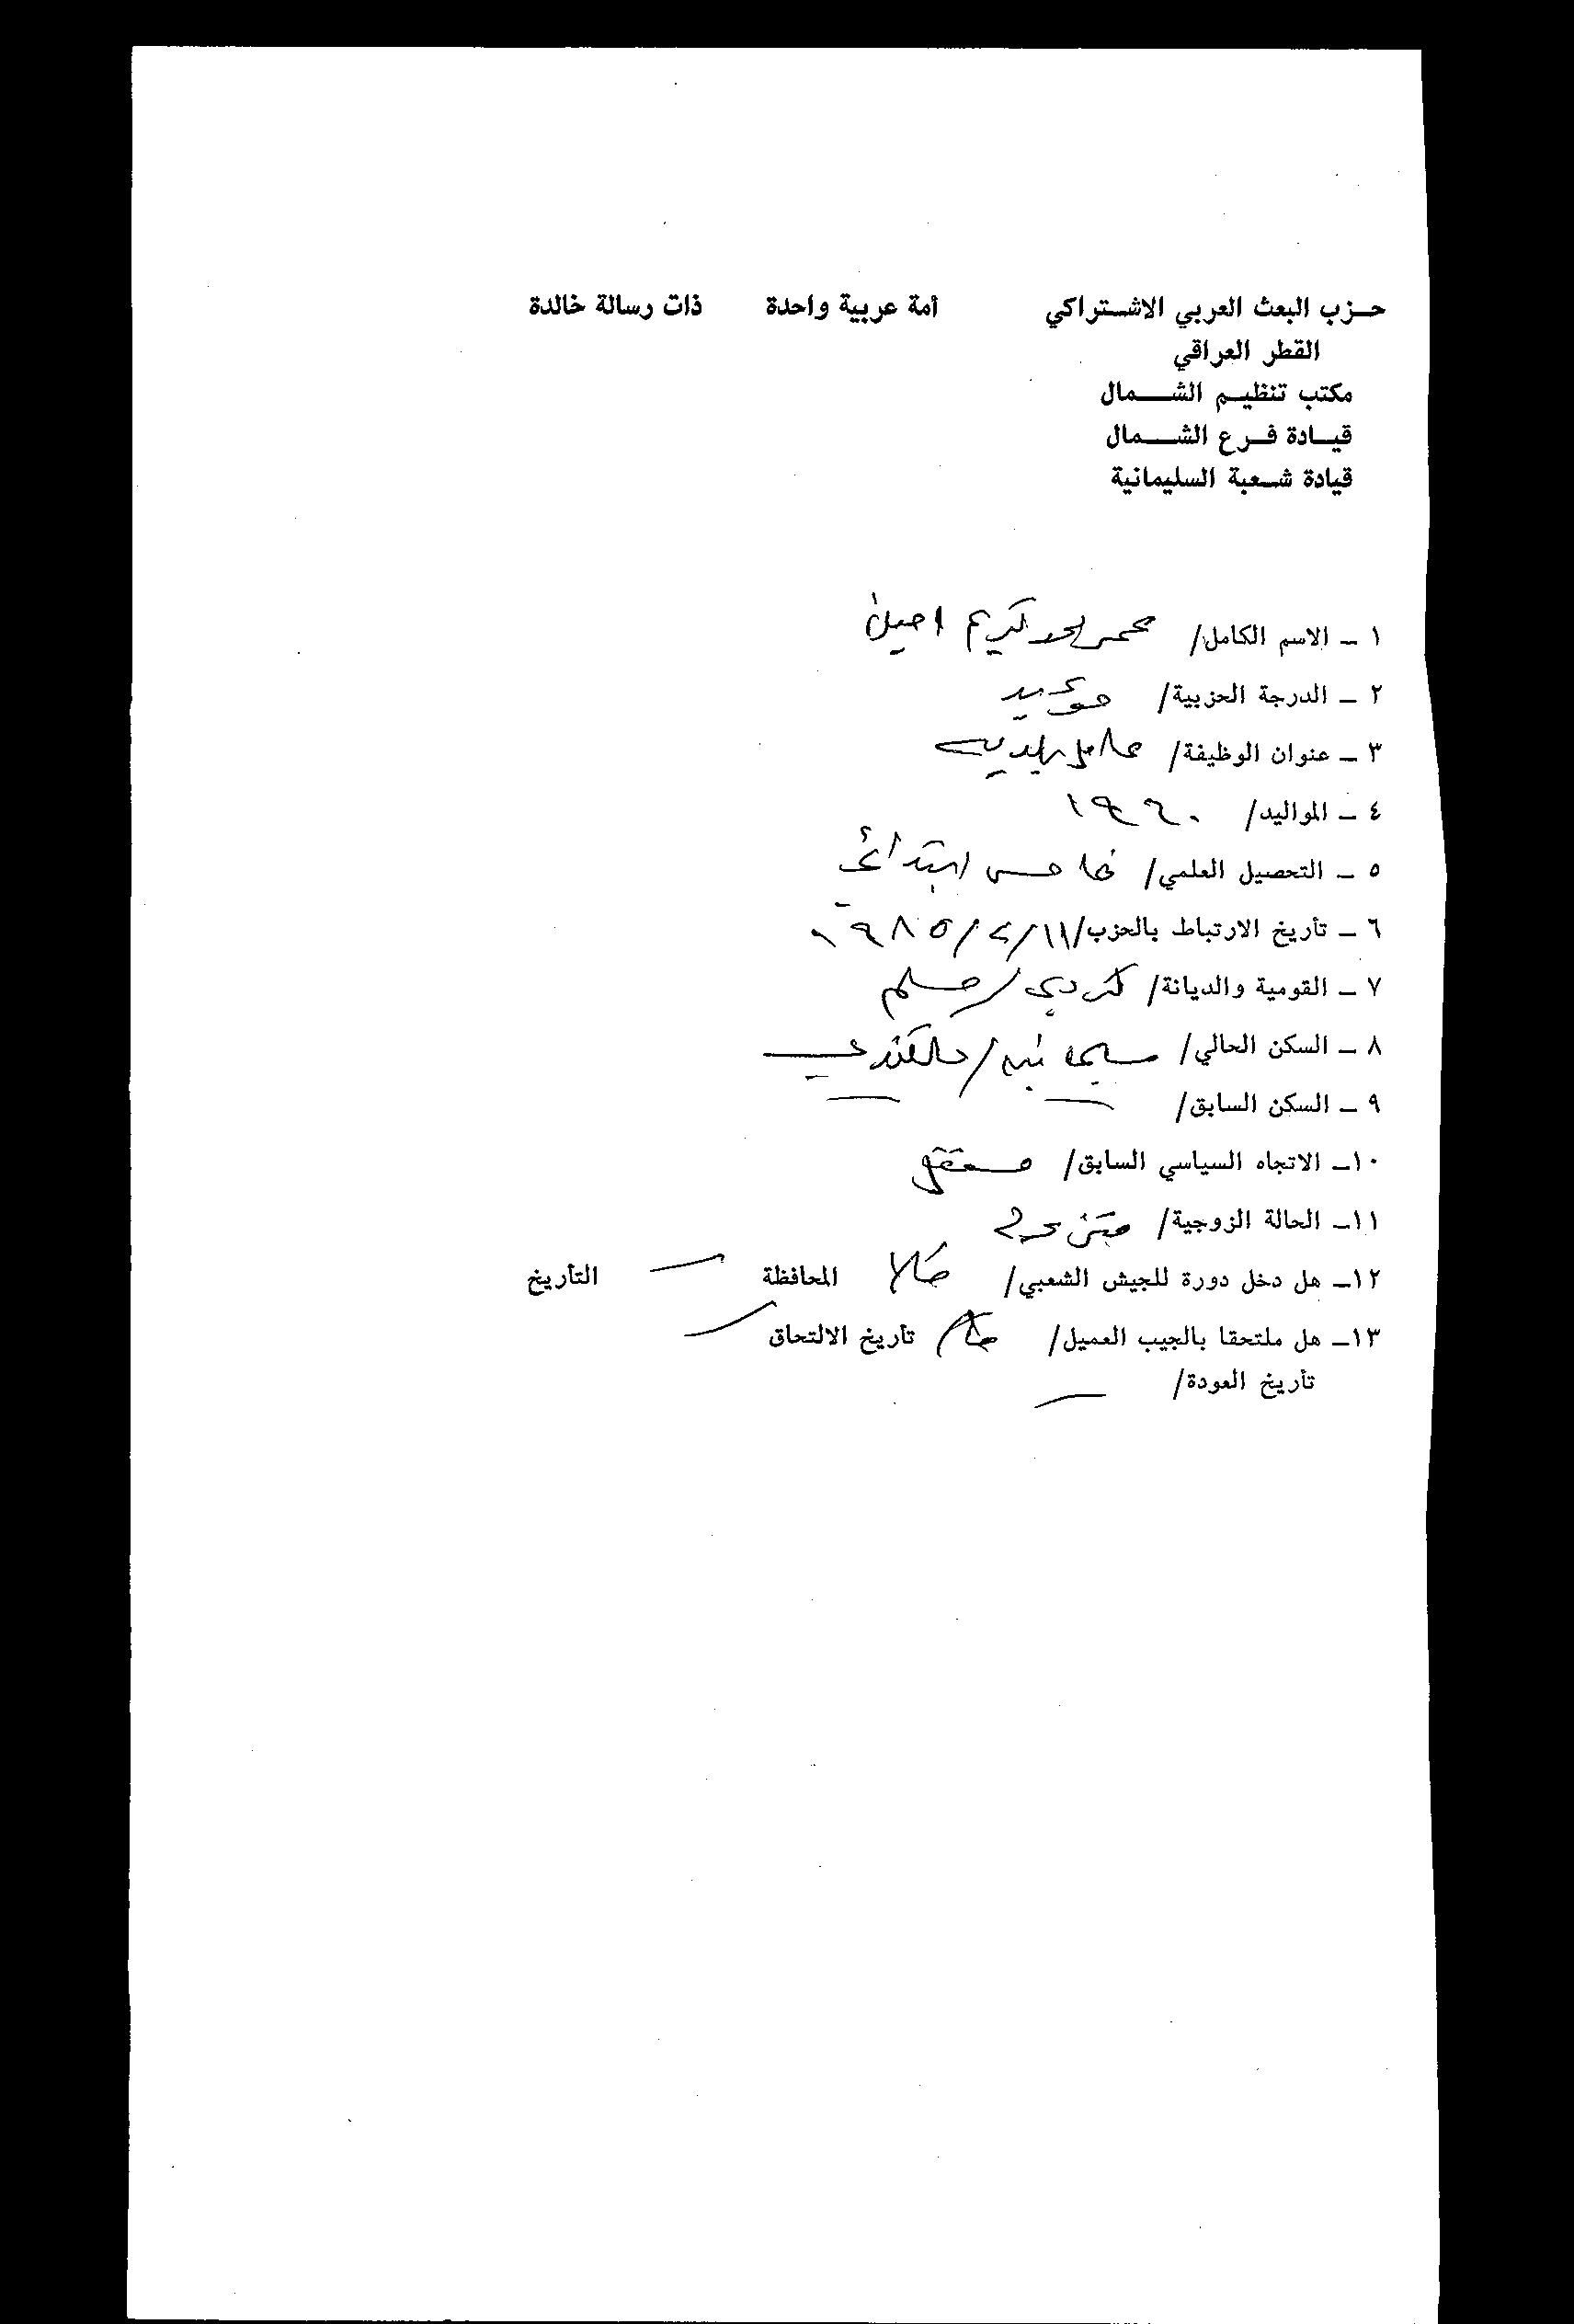 حزب البعث العربي الاشتراكي أمة عربية واحدة ذات رسالة خالدة
القطر العراقي
مكتب تنظيم الشمال
قيادة فرع الشمال
قيادة شعبة السليمانية
١ - الاسم الكامل/ محمد احمد كريم امين
٢ - الدرجة الحزبية/ مؤيد
٣ - عنوان الوظيفة/ عامل بلدية
٤ - المواليد/ ١٩٦٠
٥ - التحصيل العلمي/ خامس ابتدائي
٦ - تأريخ الارتباط بالحزب/ ١١/٢/١٩٨٥
٧ - القومية والديانة/ كردي/مسلم
٨ - السكن الحالي/ سليمانيه/
٩ - السكن السابق/ —
١٠- الاتجاه السياسي السابق/ مستقل
١١- الحالة الزوجية/ متزوج
١٢- هل دخل دورة للجيش الشعبي/ كلا المحافظة — التأريخ
١٣- هل ملتحقا بالجيب العميل/ كلا تأريخ الالتحاق —
تأريخ العودة/ —